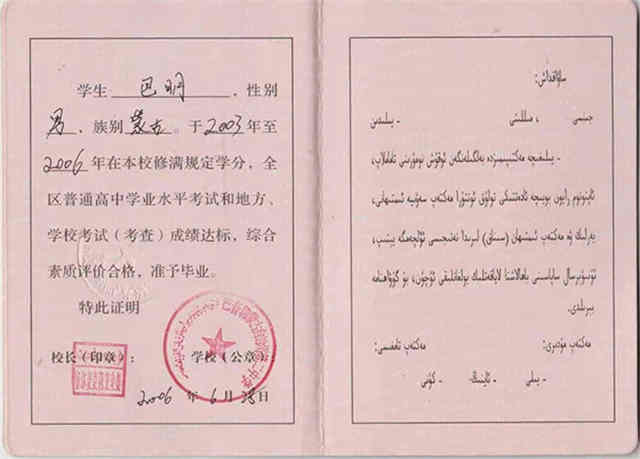 学生 巴明 ，性别
男 ，族别 蒙古 。于 2003 年至
2006 年在本校修满规定学分，全
区普通高中学业水平考试和地方、
学校考试（考查）成绩达标，综合
素质评价合格，准予毕业。
特此证明
校长（印章）： 学校（公章）：
2006 年 6 月 日
ساۋاقداش:
جىنسى ، مىللىتى - يىلىدىن
- يىلىغىچە مەكتىپىمىزدە بەلگىلەنگەن ئوقۇش نومۇرىنى تاماملاپ،
ئاپتونوم رايون بويىچە ئادەتتىكى تولۇق ئوتتۇرا مەكتەپ سەۋىيە ئىمتىھانى،
يەرلىك ۋە مەكتەپ ئىمتىھان (سىناق) لىرىدا نەتىجىسى ئۆلچەمگە يېتىپ،
ئۇنىۋېرسال ساپاسىنى باھالاشتا لاياقەتلىك بولغانلىقى ئۈچۈن، بۇ گۇۋاھنامە
بېرىلدى.
مەكتەپ مۇدىرى: مەكتەپ تامغىسى:
- يىلى - ئاينىڭ - كۈنى